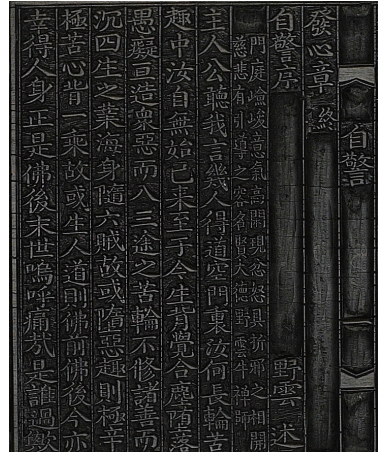 自警
發心章 終
自警序 野雲 述
門庭嶮峻意氣高閑現忿怒具折邪之相開
慈悲有引導之容名賢大德野雲牛禪師
主人公聽我言幾人得道空門裏汝何長輪苦
趣中汝自無始已來至于今生背覺合塵墮落
愚癡亘造衆惡而入三途之苦輪不修諸善而
沉四生之業海身隨六賊故或墮惡趣則極辛
極苦心背一乘故或生人道則佛前佛後今亦
幸得人身正是佛後末世嗚呼痛哉是誰過歟